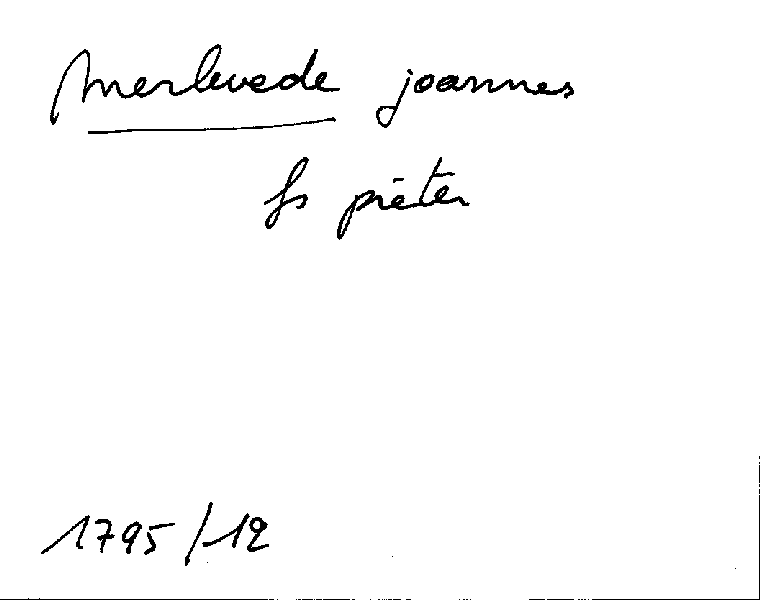 Merlevede joannes
fs pieter
1795/12